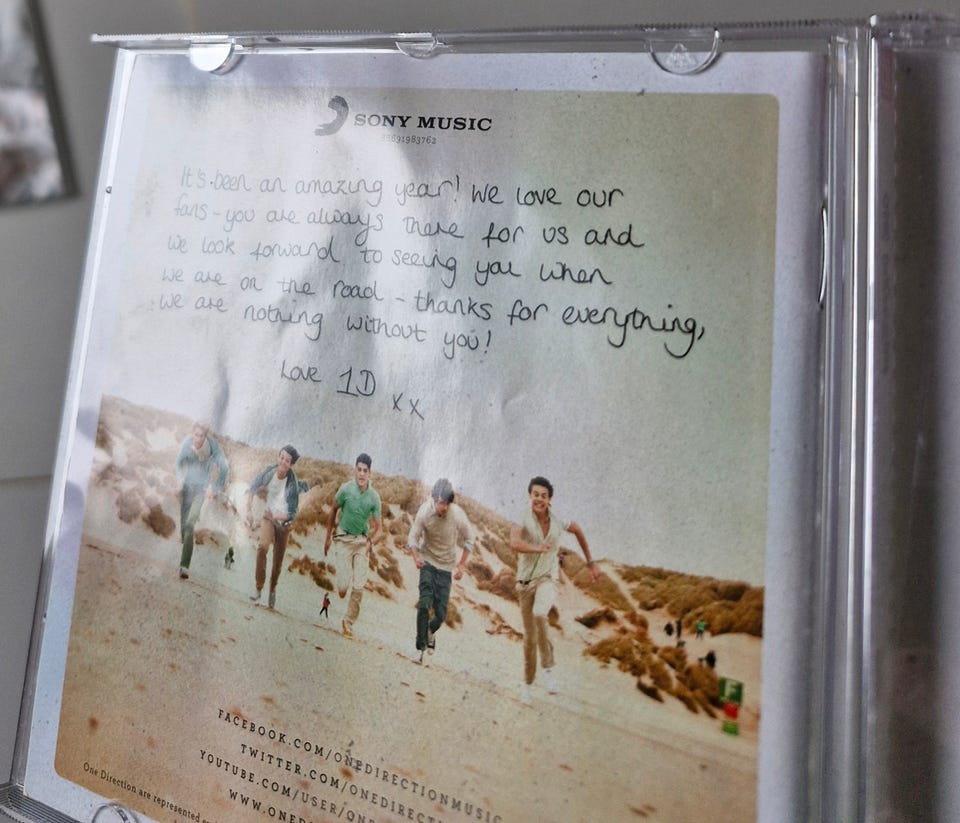 SONY MUSIC
It's been an amazing year! We love our
fans - you are always there for us and
we look forward to seeing you when
we are on the road - thanks for everything,
we are nothing without you!
Love 1D
x x
F
FACEBOOK.COM/ONEDIRECTIONMUSIC
TWITTER.COM/ONEDIRECT
YOUTUBE.COM/USER/ONE
WWW.ONED
One Direction are represented